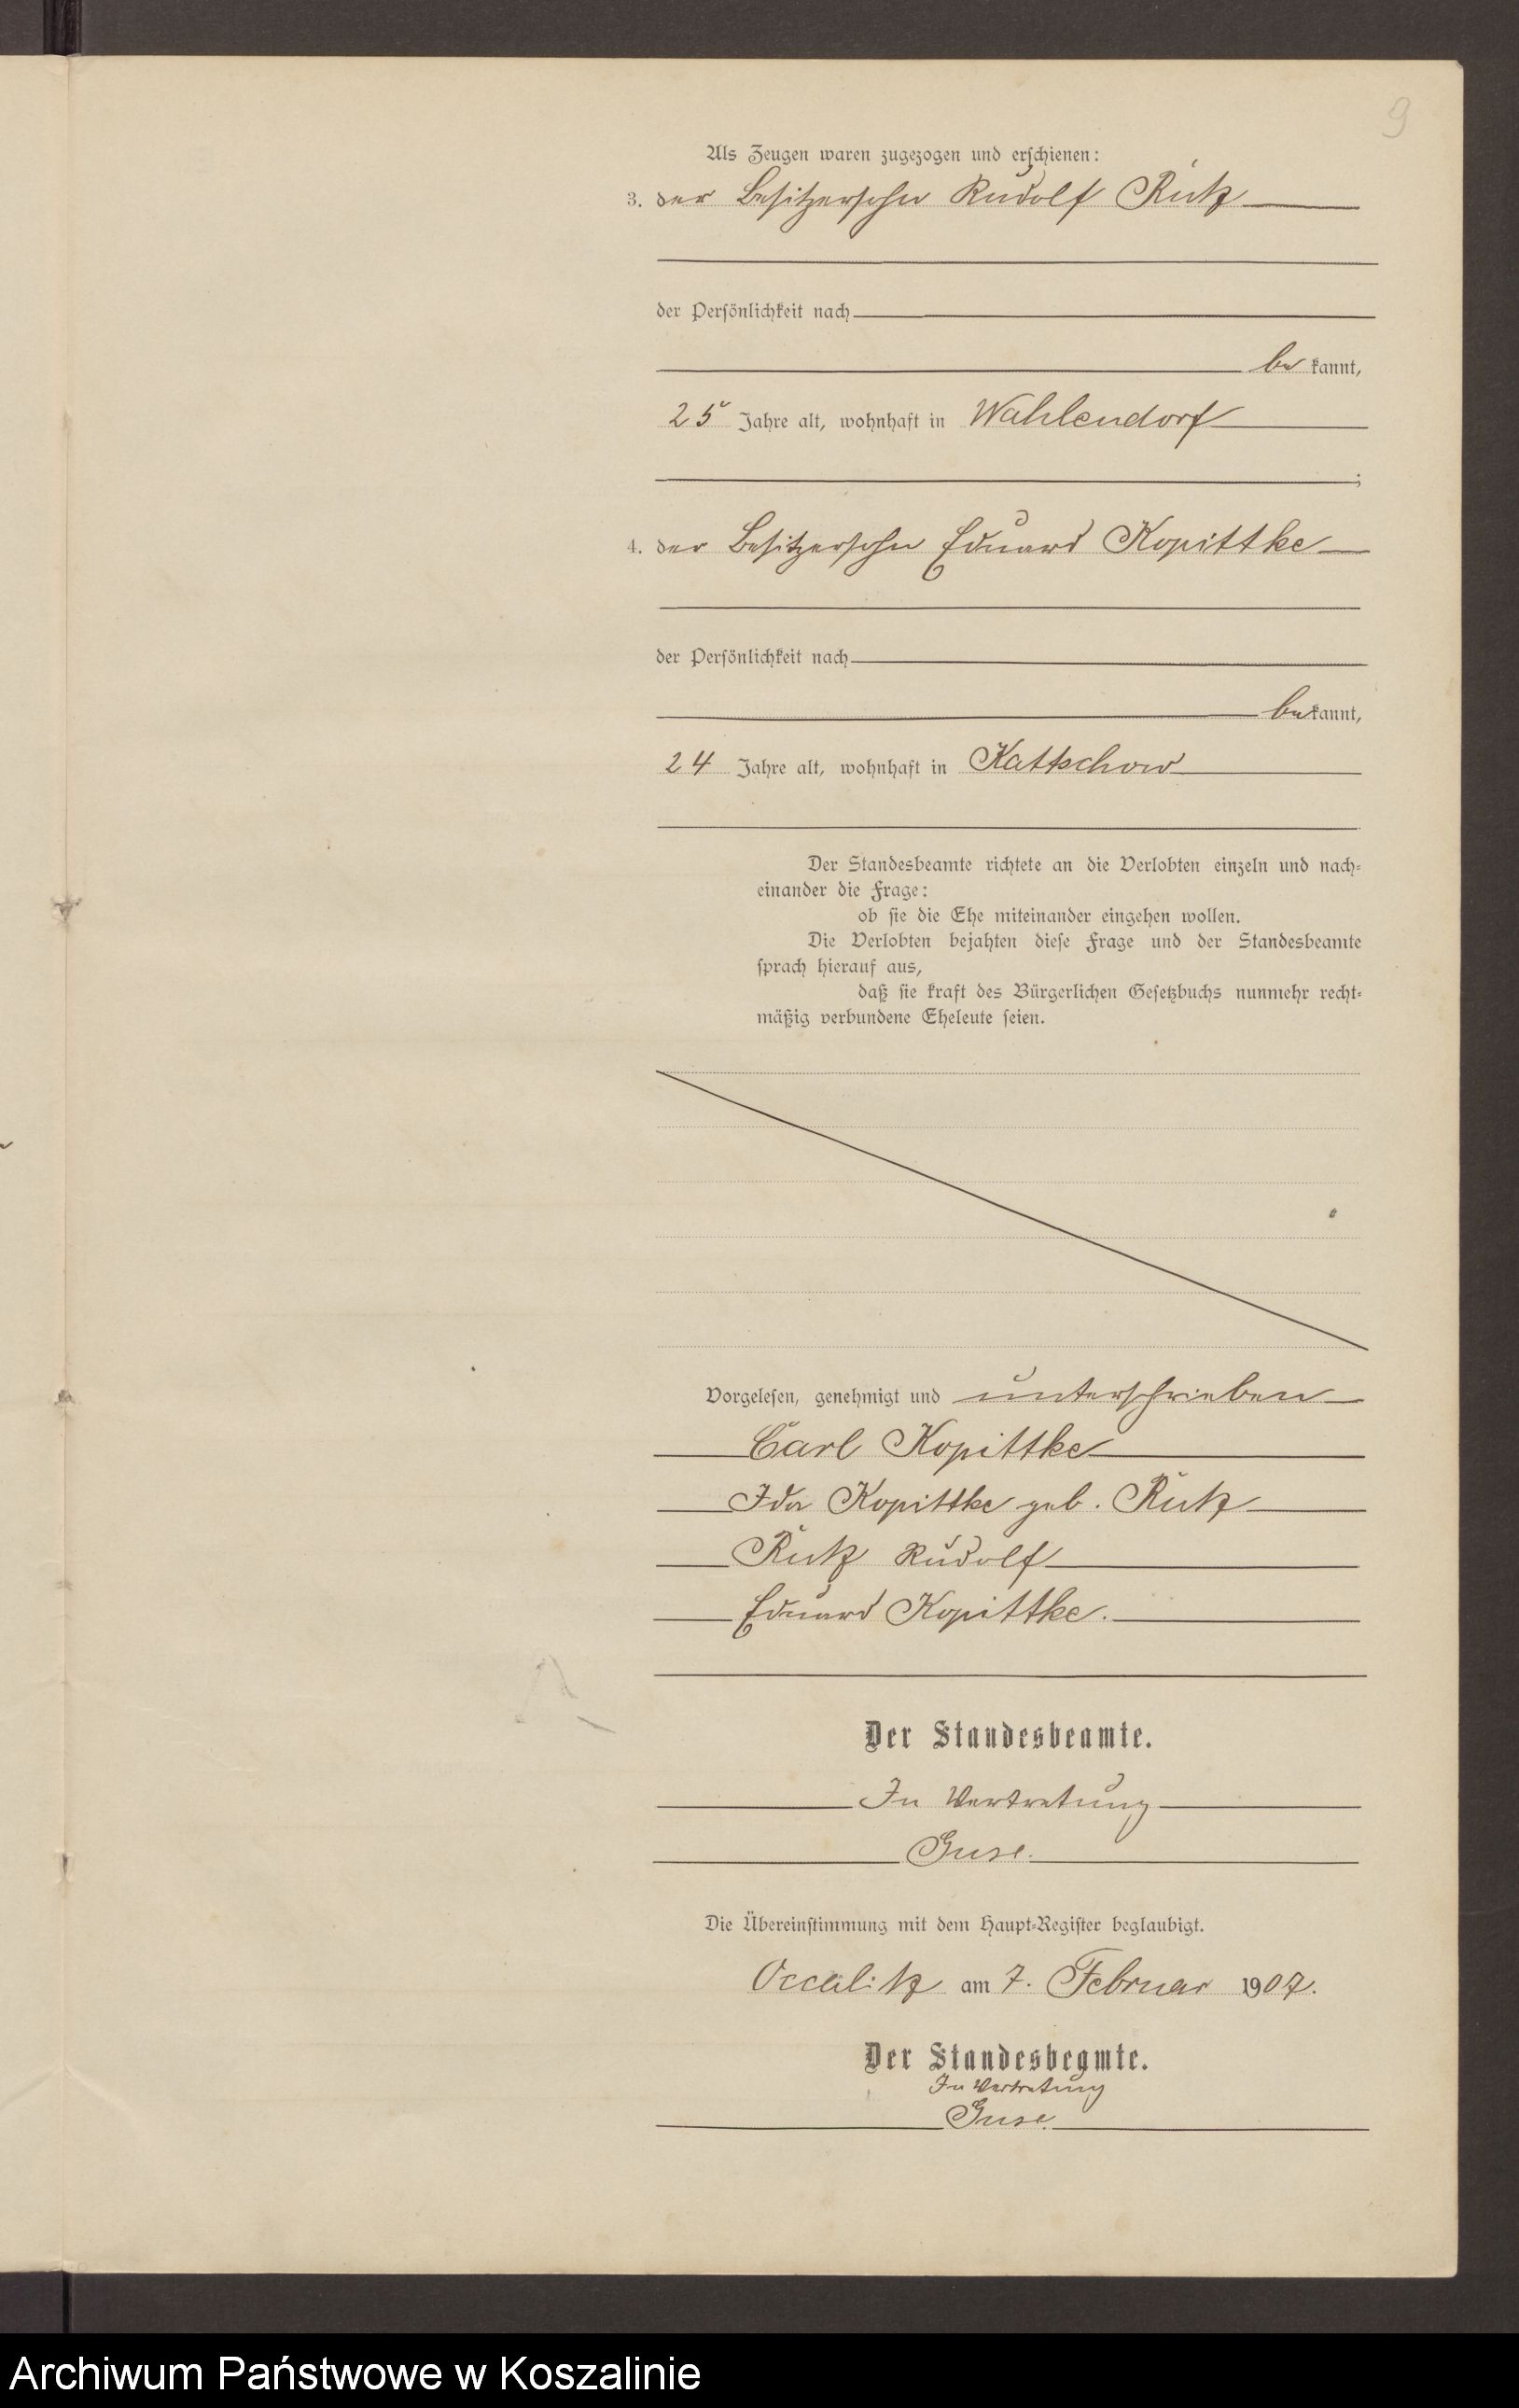 9
Als Zeugen waren zugezogen und erschienen:
3. der Besitzersohn Rudolf Rutz
der Persönlichkeit nach
be kannt,
25 Jahre alt, wohnhaft in Wahlendorf
;
4. der Besitzersohn Eduard Kopittke
der Persönlichkeit nach
be kannt,
24 Jahre alt, wohnhaft in Kattschow
Der Standesbeamte richtete an die Verlobten einzeln und nach-
einander die Frage:
ob sie die Ehe miteinander eingehen wollen.
Die Verlobten bejahten diese Frage und der Standesbeamte
sprach hierauf aus,
daß sie kraft des Bürgerlichen Gesetzbuchs nunmehr recht-
mäßig verbundene Eheleute seien.
Vorgelesen, genehmigt und unterschrieben
Carl Kopittke
Ida Kopittke geb. Rutz
Rutz Rudolf
Eduard Kopittke.
Der Standesbeamte.
In Vertretung
Guse.
Die Übereinstimmung mit dem Haupt-Register beglaubigt.
Occalitz am 7. Februar 1907.
Der Standesbeamte.
In Vertretung
Guse.
Archiwum Państwowe w Koszalinie